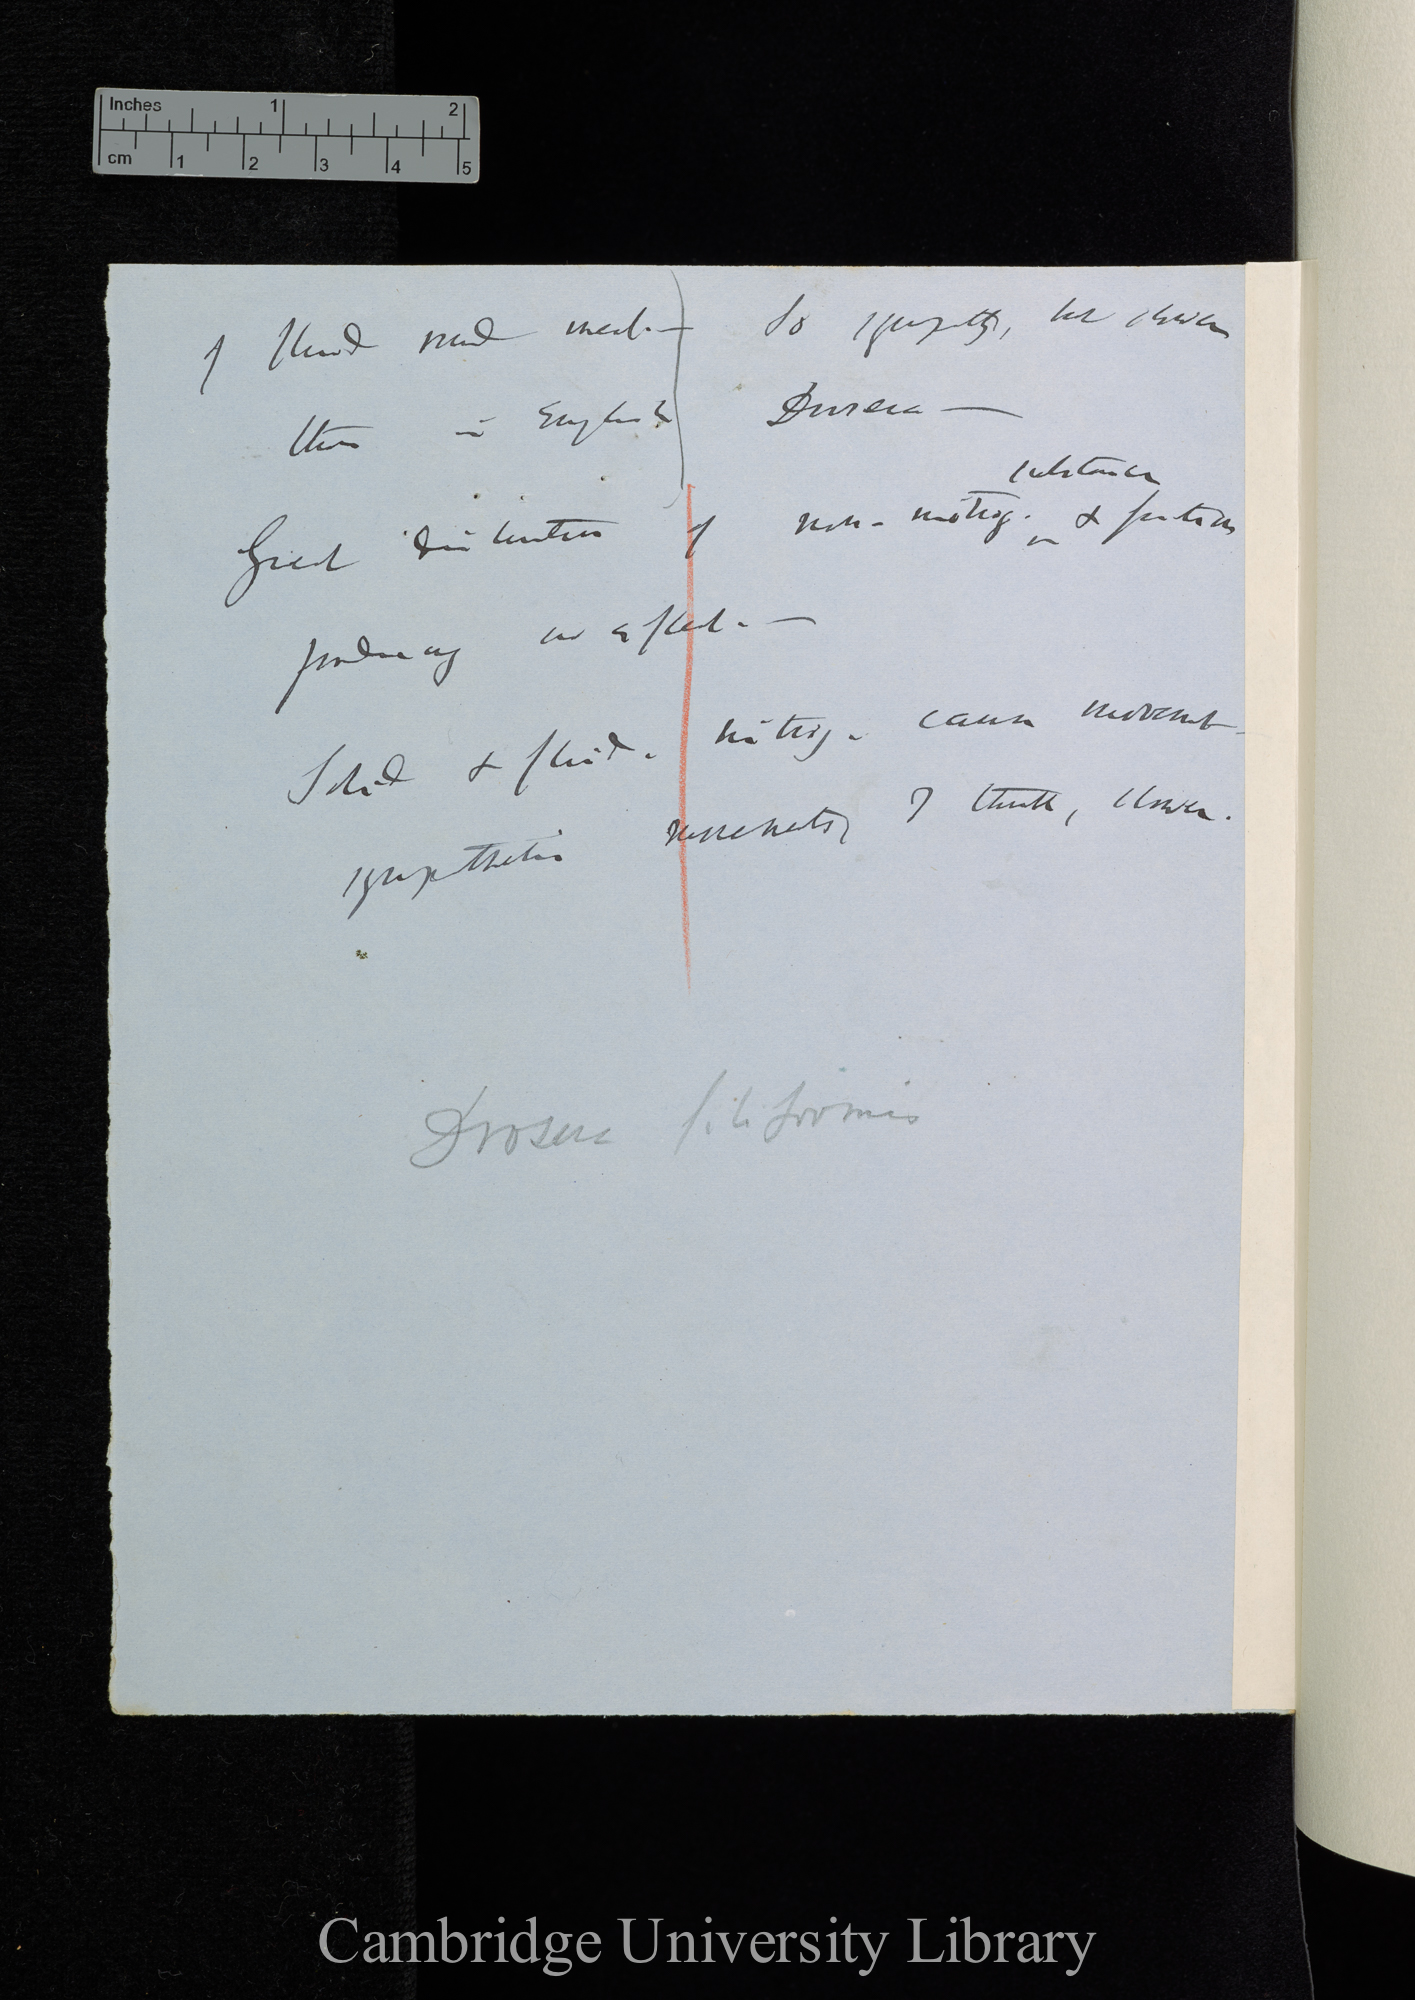 Inches 1 2
cm 1 2 3 4 5
of fluid raw meat. — So sympathy, but slower
than in English Drosera —
Great distinction of non-nitrog. substances &
producing no effect. —
Solid & fluid. nitrog. cause movement
sympathetic movements, I think, slower.
Drosera filiformis
Cambridge University Library